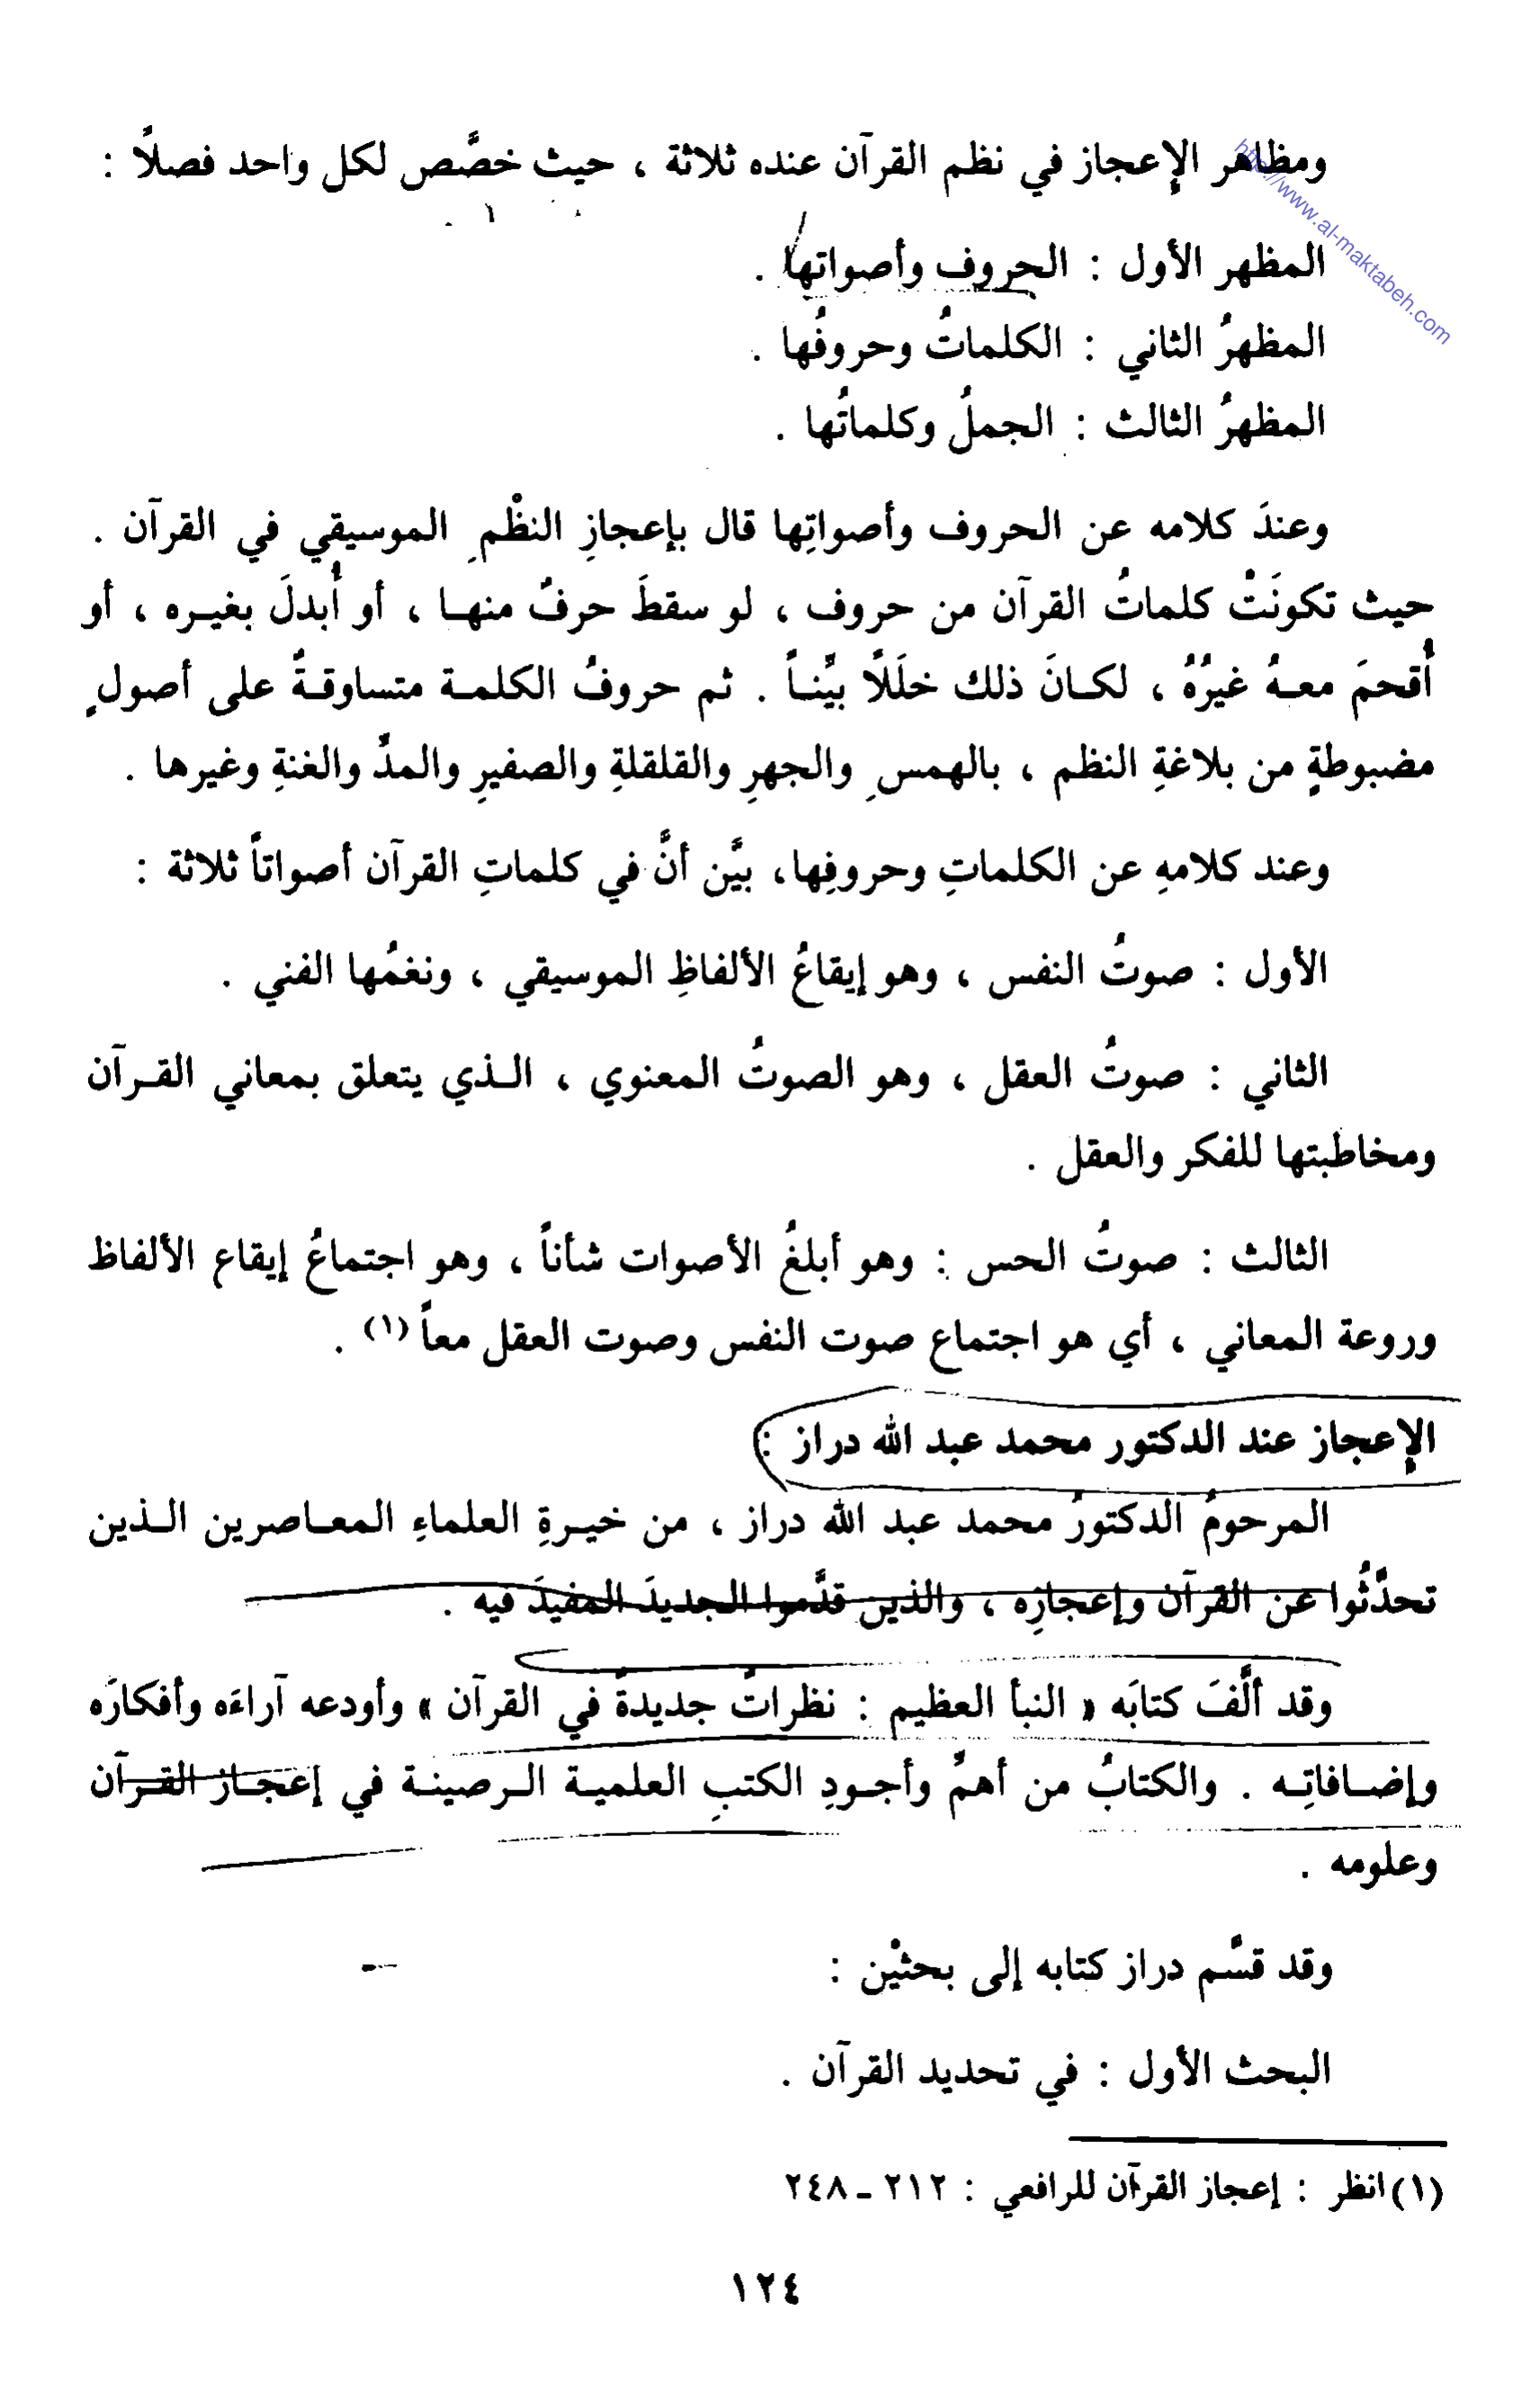 ومظاهر الإعجاز في نظم القرآن عنده ثلاثة ، حيث خصَّص لكل واحد فصلاً :
http://www.al-maktabeh.com
المظهر الأول : الحروف وأصواتها .
المظهرُ الثاني : الكلماتُ وحروفُها .
المظهرُ الثالث : الجملُ وكلماتُها .
وعندَ كلامه عن الحروف وأصواتِها قال بإعجازِ النظْمِ الموسيقي في القرآن .
حيث تكونَتْ كلماتُ القرآن من حروف ، لو سقطَ حرفٌ منهـا ، أو أُبدلَ بغيـره ، أو
أُقحمَ معـهُ غيرُهُ ، لكـانَ ذلك خلَلاً بيِّنـاً . ثم حروفُ الكلمـة متساوقـةٌ على أصولٍ
مضبوطةٍ من بلاغةِ النظم ، بالهمسِ والجهرِ والقلقلةِ والصفيرِ والمدِّ والغنةِ وغيرها .
وعند كلامهِ عن الكلماتِ وحروفِها، بيَّن أنَّ في كلماتِ القرآن أصواتاً ثلاثة :
الأول : صوتُ النفس ، وهو إيقاعُ الألفاظِ الموسيقي ، ونغمُها الفني .
الثاني : صوتُ العقل ، وهو الصوتُ المعنوي ، الـذي يتعلق بمعاني القـرآن
ومخاطبتها للفكر والعقل .
الثالث : صوتُ الحس : وهو أبلغُ الأصوات شأناً ، وهو اجتماعُ إيقاع الألفاظ
وروعة المعاني ، أي هو اجتماع صوت النفس وصوت العقل معاً (١) .
الإعجاز عند الدكتور محمد عبد الله دراز :
المرحومُ الدكتورُ محمد عبد الله دراز ، من خيـرةِ العلماءِ المعـاصرين الـذين
تحدَّثُوا عن القرآن وإعجازِه ، والذين قدَّموا الجديدَ المفيدَ فيه .
وقد ألَّفَ كتابَه « النبأ العظيم : نظراتٌ جديدةٌ في القرآن » وأودعه آراءَه وأفكارَه
وإضـافاتِـه . والكتابُ من أهمِّ وأجـودِ الكتبِ العلميـة الـرصينـة في إعجـاز القـرآن
وعلومه .
وقد قسَّم دراز كتابه إلى بحثيْن :
البحث الأول : في تحديد القرآن .
(١) انظر : إعجاز القرآن للرافعي : ٢١٢ ـ ٢٤٨
١٢٤